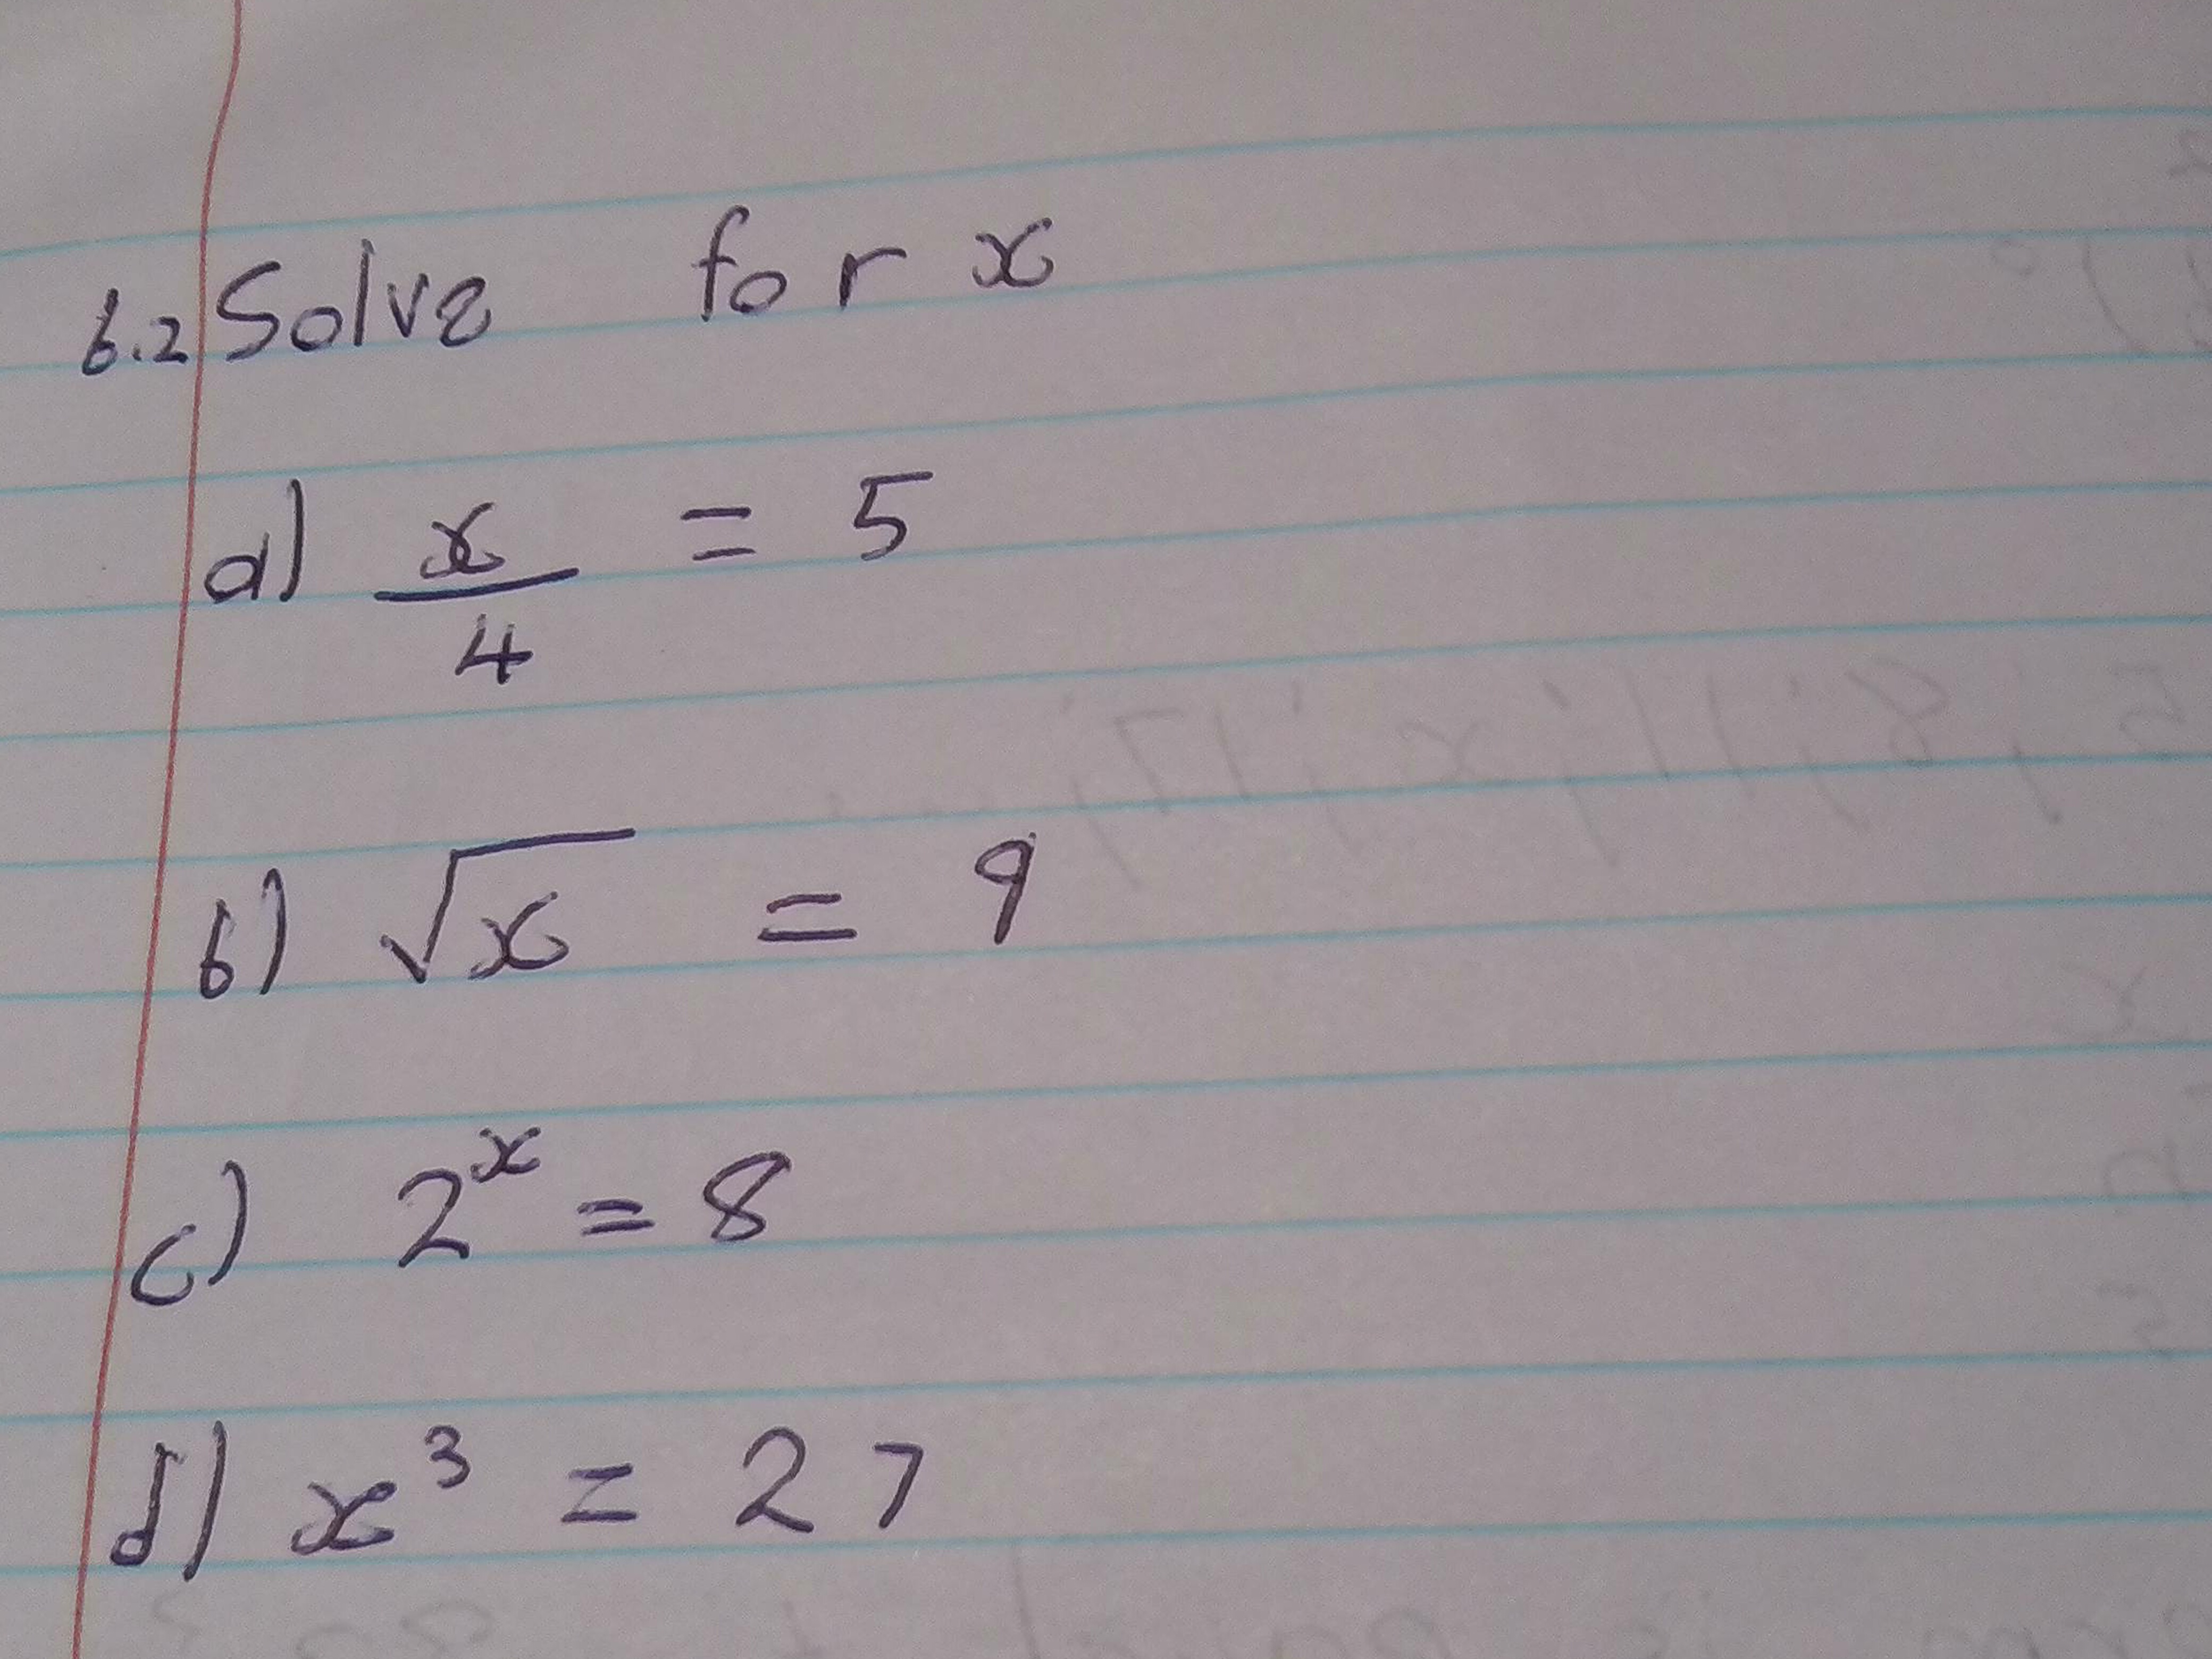 6.2 Solve for x
a) x/4 = 5
b) √x = 9
c) 2^x = 8
d) x^3 = 27